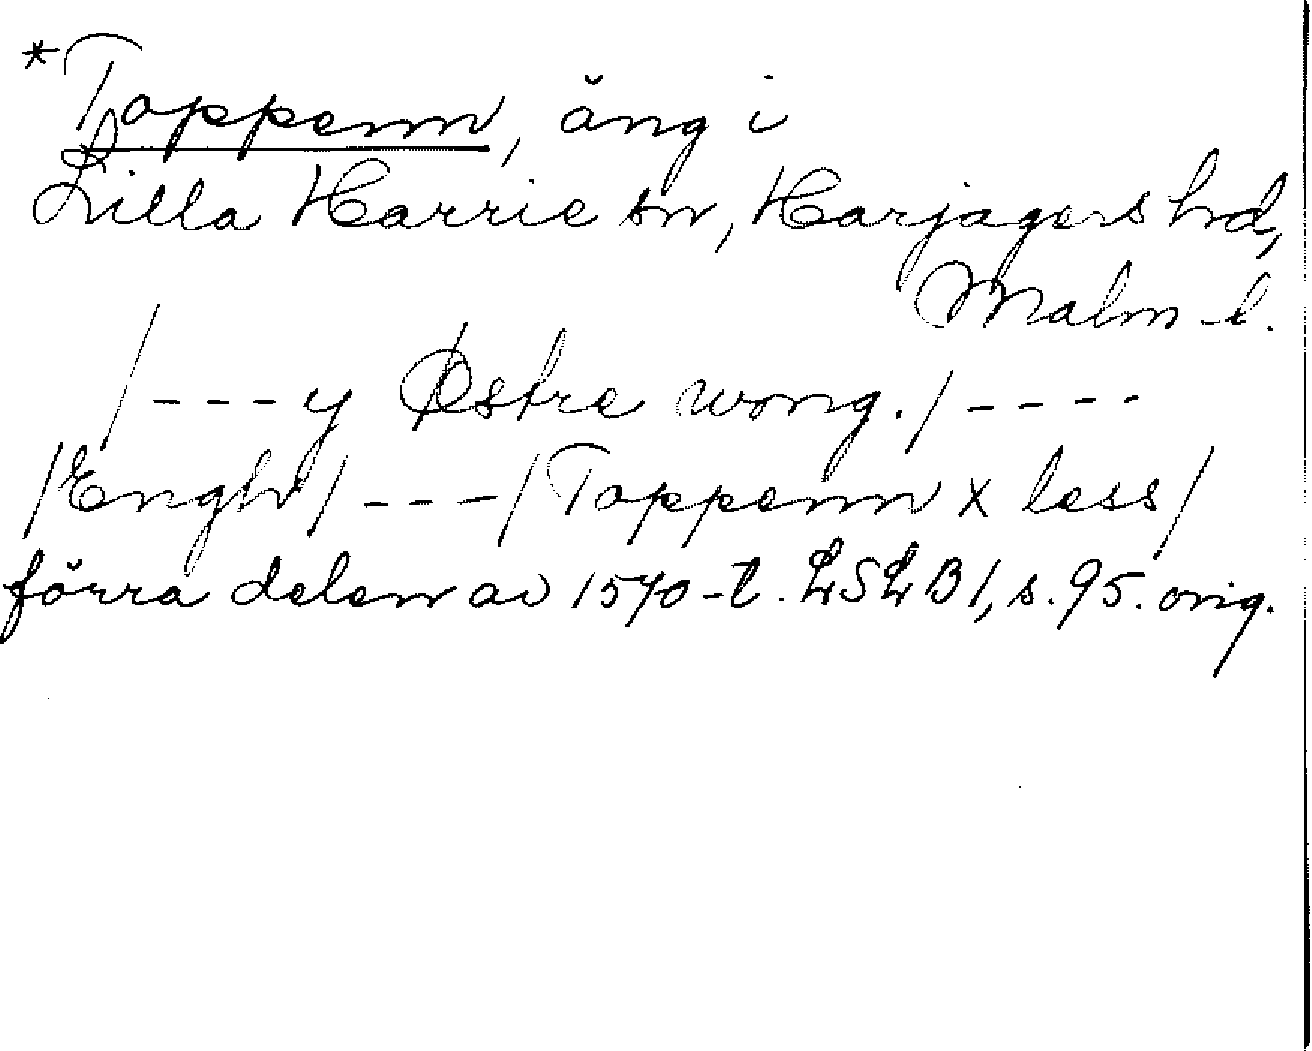 *Toppenn, äng i
Lilla Harrie sn, Harjagers hd,
Malm-l.
/---y Østre wong./----
/Engh/---/Toppenn x less/
förra delen av 1570-t. LSLB1, s. 95. orig.